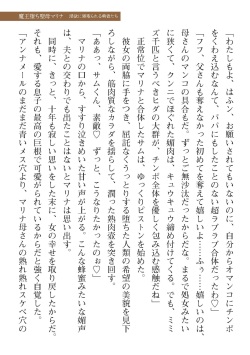 魔王堕ち聖母マリナ
「わたしもよ、はふン、お願いされてもないのに、自分からオマンコにチンポ
をくわえ込むなんて、パパにもしたことのない超ラブラブ合体だったわ♡」
「フフ、父さんも奪えなかった初めてを奪えて嬉しいよ……ふぅ……嬉しいのは、
母さんのマンコの具合もだ。ずっとご無沙汰だったからだな。まるで未経産みたい
に狭くて、ニンニクにほぐれた媚肉は、キュウキュウ締め付けてくる。でも、ミミ
ズ千匹と言うべきヒダの大群が、チンポ全体を優しく包み込む感触だね」
正常位でマリナと合体したサムは、ゆっくりピストンを始めた。
彼女の両脇に手をつき、屈託なくうっとりする堕ちた人類の希望の美貌を見下
ろしながら、筋肉質なカラダを揺らして、潤った熟肉壺を突き回す。
「ああっ、サムくん、素敵♡　ずっと、こうなりたかったのぉ♡」
マリナの口から、すすり泣きめいた甘い声が上がる。こんな蜂蜜みたいな媚声
は、夫との交わりでも出したことはないとマリナは思い出す。
同時に、きっと、十年も苦しい思いをした末に、女の幸せを取り戻したからだ、
それも、愛する息子の最高の巨根で可愛がられているからだと強く自覚した。
「アンナメールのまだまだ青いメス穴より、マリナ母さんの熟れ熟れスケベ穴の